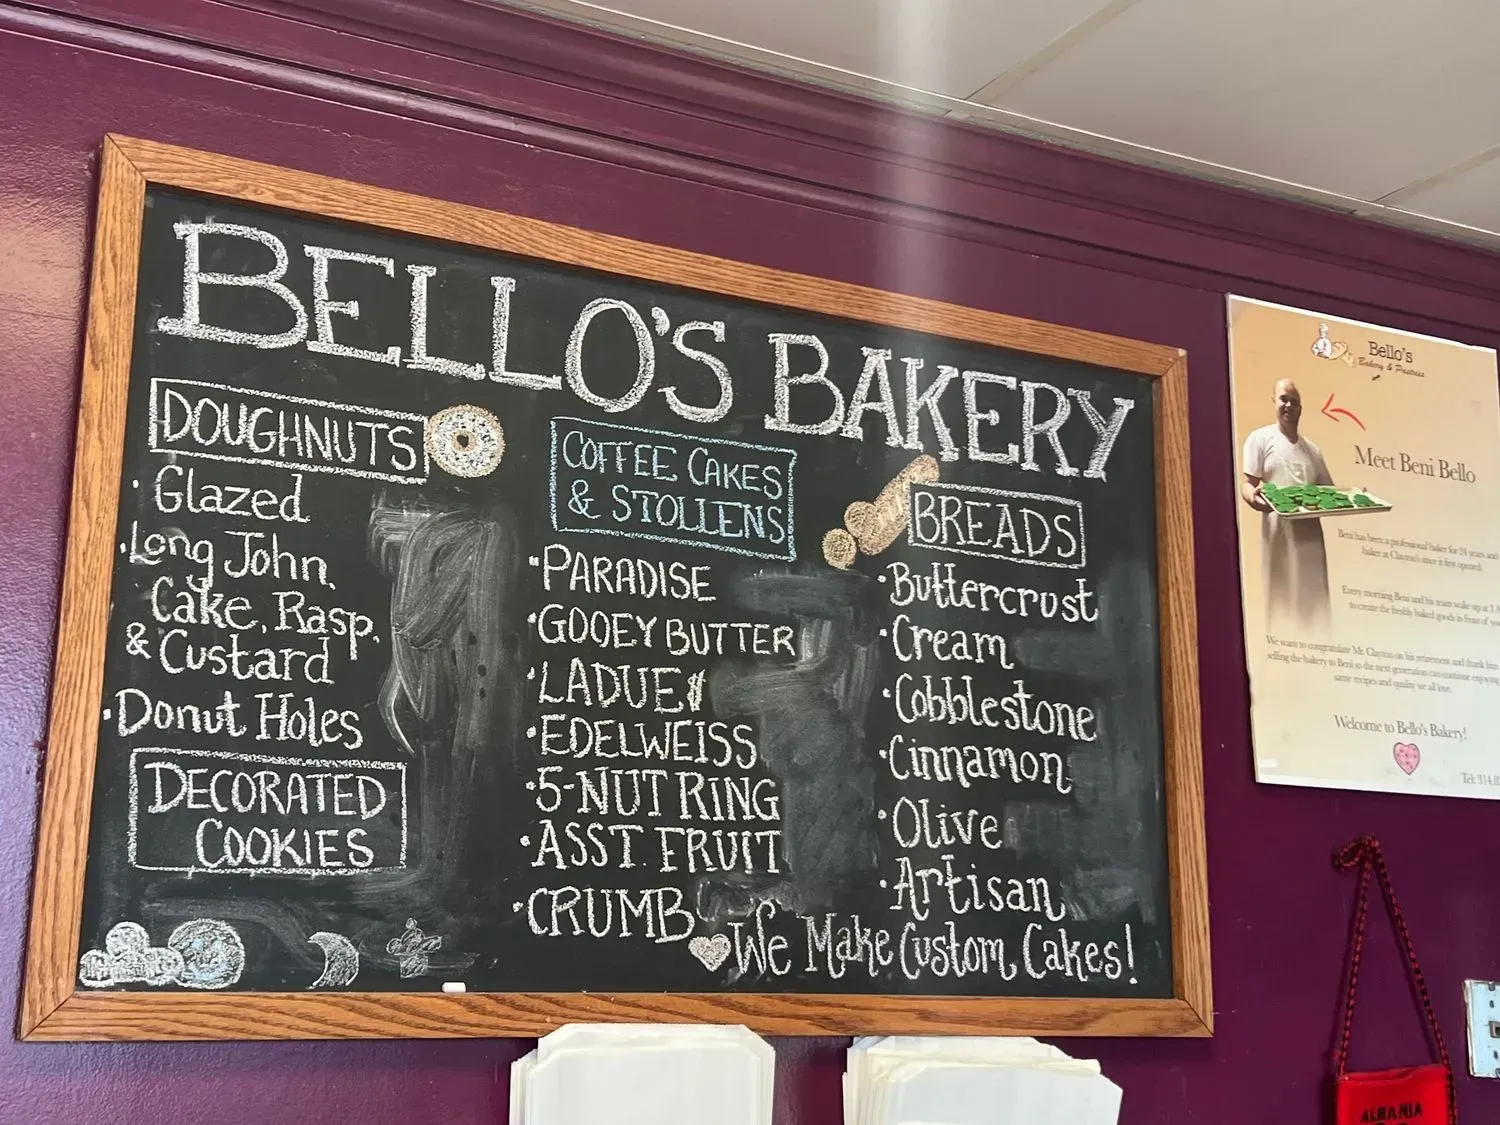 BELLO'S BAKERY
DOUGHNUTS
· Glazed
· Long John,
Cake, Rasp,
& Custard
· Donut Holes
DECORATED
COOKIES
COFFEE CAKES
& STOLLENS
· PARADISE
· GOOEY BUTTER
· LADUE
· EDELWEISS
· 5-NUT RING
· ASST. FRUIT
· CRUMB
BREADS
· Buttercrust
· Cream
· Cobblestone
· Cinnamon
· Olive
· Artisan
We Make Custom Cakes!
Bello's
Bakery & Pastries
Meet Beni Bello
Beni has been a professional baker for 24 years and
baker at Clayton's since it first opened.
Every morning Beni and his team wake up at 3 A
to create the freshly baked goods in front of yo
We want to congratulate Mr. Clayton on his retirement and thank him
selling the bakery to Beni so the next generation can continue enjoying
same recipes and quality we all love.
Welcome to Bello's Bakery!
Tel: 314.8
ALBANIA